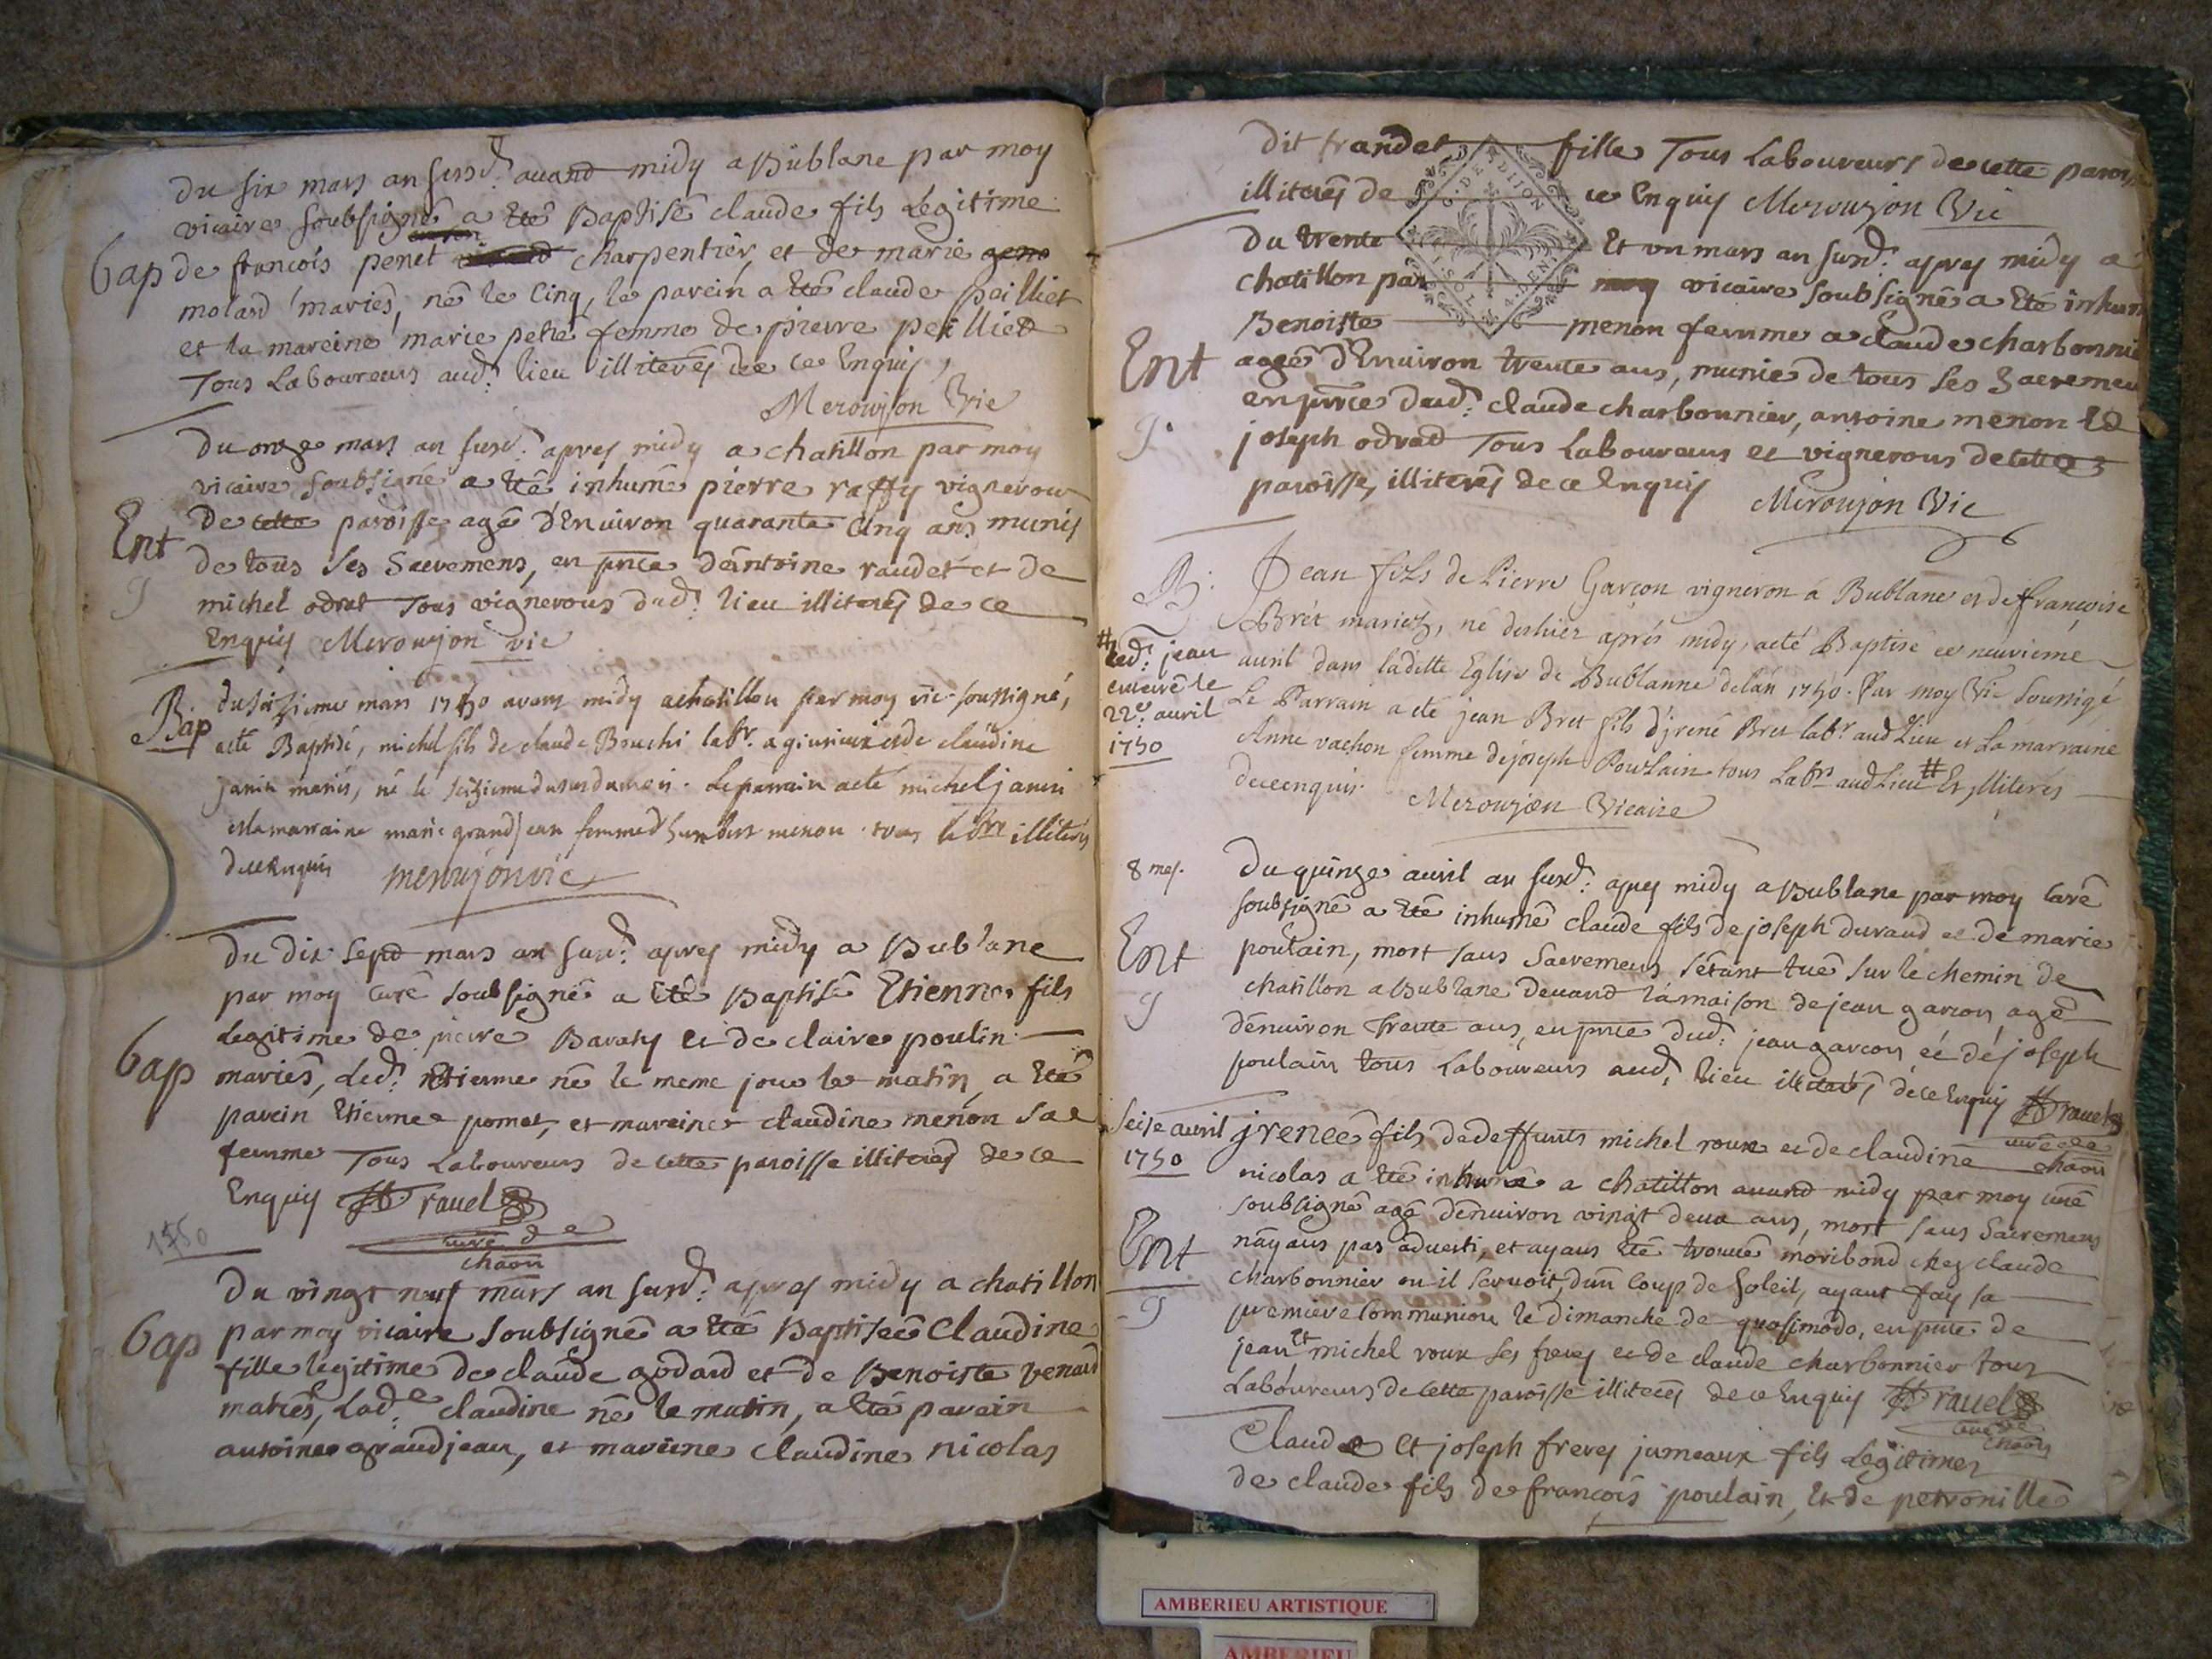 Du six mars an susd. auand midy a Büblane par moy
vicaire soubsigné a eté Baptisé claude fils Legitime
Bap de francois penet charpentier, et de marie
molard mariés, né le cinq, le parein a eté claude peilliet
et la mareine marie femme de pierre peilliet
Tous Laboureurs aud. lieu illiterés de ce Enquis
Meroujon Vic
Du onze mars an susd. apres midy a chatillon par moy
vicaire soubsigné a eté inhumé pierre raffy vigneron
Ent de cette paroisse agé d'Enuiron quarante Cinq ans munis
de tous ses Sacremens, en pnce d'antoine raudet et de
michel odrat Tous vignerons dud. lieu illiterés de ce
Enquis Meroujon vic
Bap du seizieme mars 1750 avant midy a chatillon par moy vic. soussigné,
a eté Baptisé, michel fils de claude Bouchi labr. a et de claudine
janin mariés, né le seizieme du susd. mois. Le parrain a eté michel janin
et la marraine marie grandjean femme d'humbert menon tous labrs illiterés
de ce Enquis Meroujon vic
Du dix sept mars an susd. apres midy a Bublane
par moy curé soubsigné a eté Baptisé Etienne fils
Legitime de pierre Baraty et de claire poulin
Bap mariés, Led. Etienne né le meme jour le matin, a eté
parein Etienne pomet, et mareine claudine menon sa
femme Tous Laboureurs de cette paroisse illiterés de ce
Enquis rauel
curé de
chaon
1750
Du vingt neuf mars an susd. apres midy a chatillon
Bap par moy vicaire soubsigné a eté Baptiseé Claudine
fille legitime de claude godard et de Benoiste venard
mariés, Lade. claudine né le matin, a eté parein
antoine grandjean, et mareine claudine nicolas
Dit frandet fille Tous Laboureurs de cette parois
illiterés de ce Enquis Meroujon Vic
Du trente Et un mars an susd. apres midy a
chatillon par moy vicaire soubsigné a eté inhum
Benoiste menon femme a claude charbonnie
Ent ageé d'Enuiron trente ans, munie de tous ses Sacremen
en pnce dud. claude charbonnier, antoine menon Et
joseph odrad Tous Laboureurs et vignerons de cette
paroisse, illiterés de ce Enquis Meroujon Vic
B. Jean fils de Pierre Garcon vigneron á Bublane et de françoise
Brét mariés, né d'enhier aprés midy, a eté Baptisé ce neuvieme
avril dans ladette Eglise de Bublanne de l'an 1750. Par moy Vic soussigé,
Le Parrain a eté jean Bret fils d'jrené Bret labr aud Lieu et La marraine
Anne vachon femme de joseph Poulain tous Labrs aud Lieu # Et illiterés
de ce enquis. Meroujon Vicaire
# Led. jean
enterré le
22e. auril
1750
8 mes.
Du quinze auril an susd. apres midy a Bublane par moy curé
soubsigné a eté inhumé claude fils de joseph durand et de marie
Ent poulain, mort sans Sacremens s'étant tué sur le chemin de
chatillon a Bublane deuand la maison de jean garcon, agé
d'enuiron trente ans, en pnce dud. jean garcon et de joseph
poulain tous Laboureurs aud. lieu illiterés de ce Enquis rauel
curé de
chaon
seise auril
1750
jreneé fils de deffunts michel roux et de claudine
nicolas a eté inhumé a chatillon auand midy par moy curé
soubsigné agé d'enuiron vingt deux ans, mort sans Sacremens
Ent n'ayans pas aduerti, et ayans eté trouué moribond chez claude
charbonnier ou il seruoit, d'un coup de soleil, ayant fay sa
premiere Communion le dimanche de quasimodo, en pnce de
jean Et michel roux ses freres et de claude charbonnier tous
Laboureurs de cette paroisse illiterés de ce Enquis rauel
curé de
chaon
Claude Et joseph freres jumeaux fils Legitimes
de claude fils de françois poulain, Et de petronille
AMBERIEU ARTISTIQUE
AMBERIEU